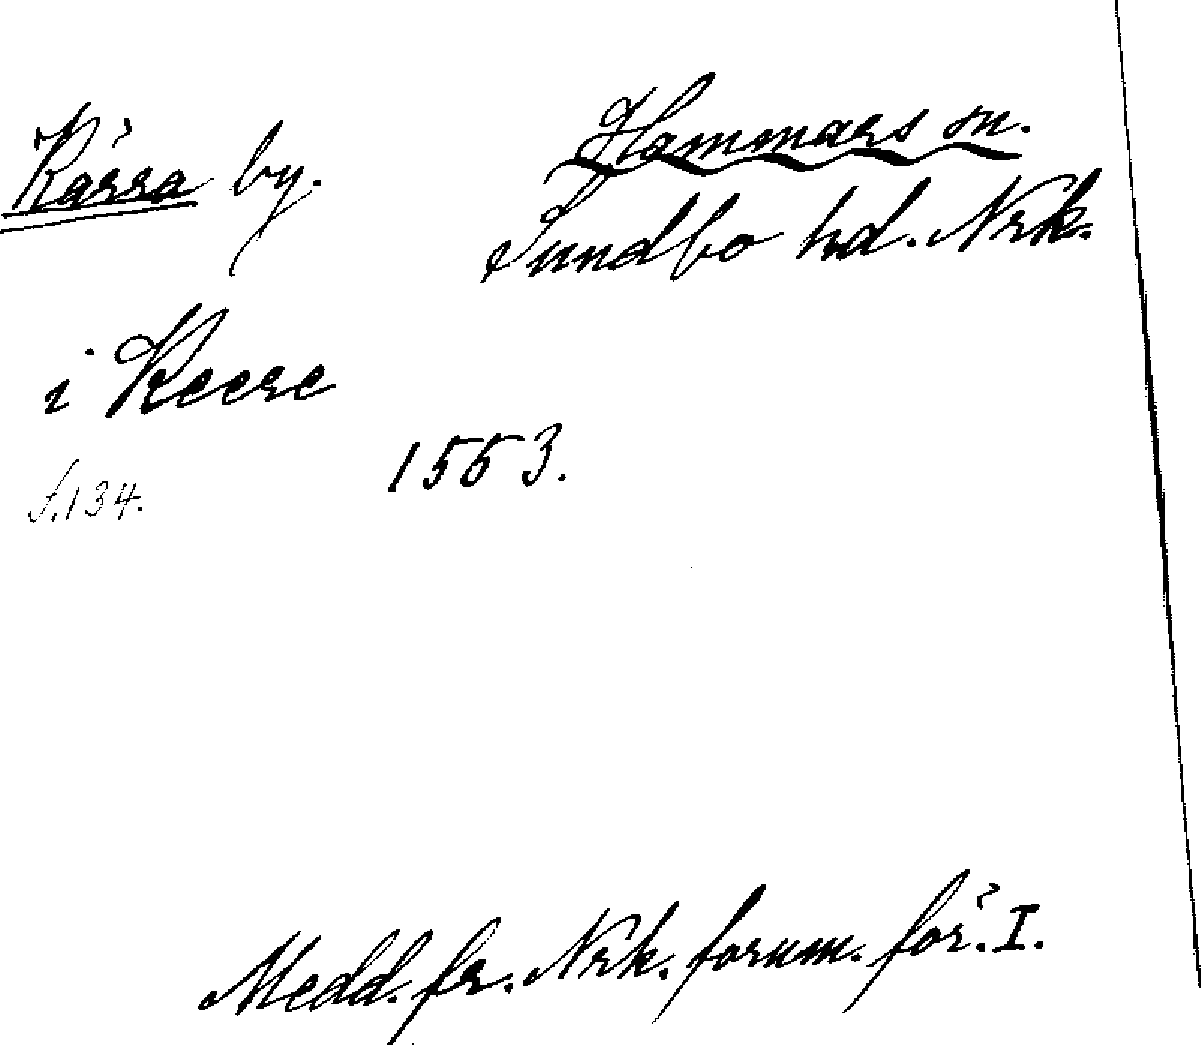 Kärra by.
Hammars sn.
Sundbo hd. Nrk.
i Keere
1553.
S. 134.
Medd. fr. Nrk. fornm. för. I.